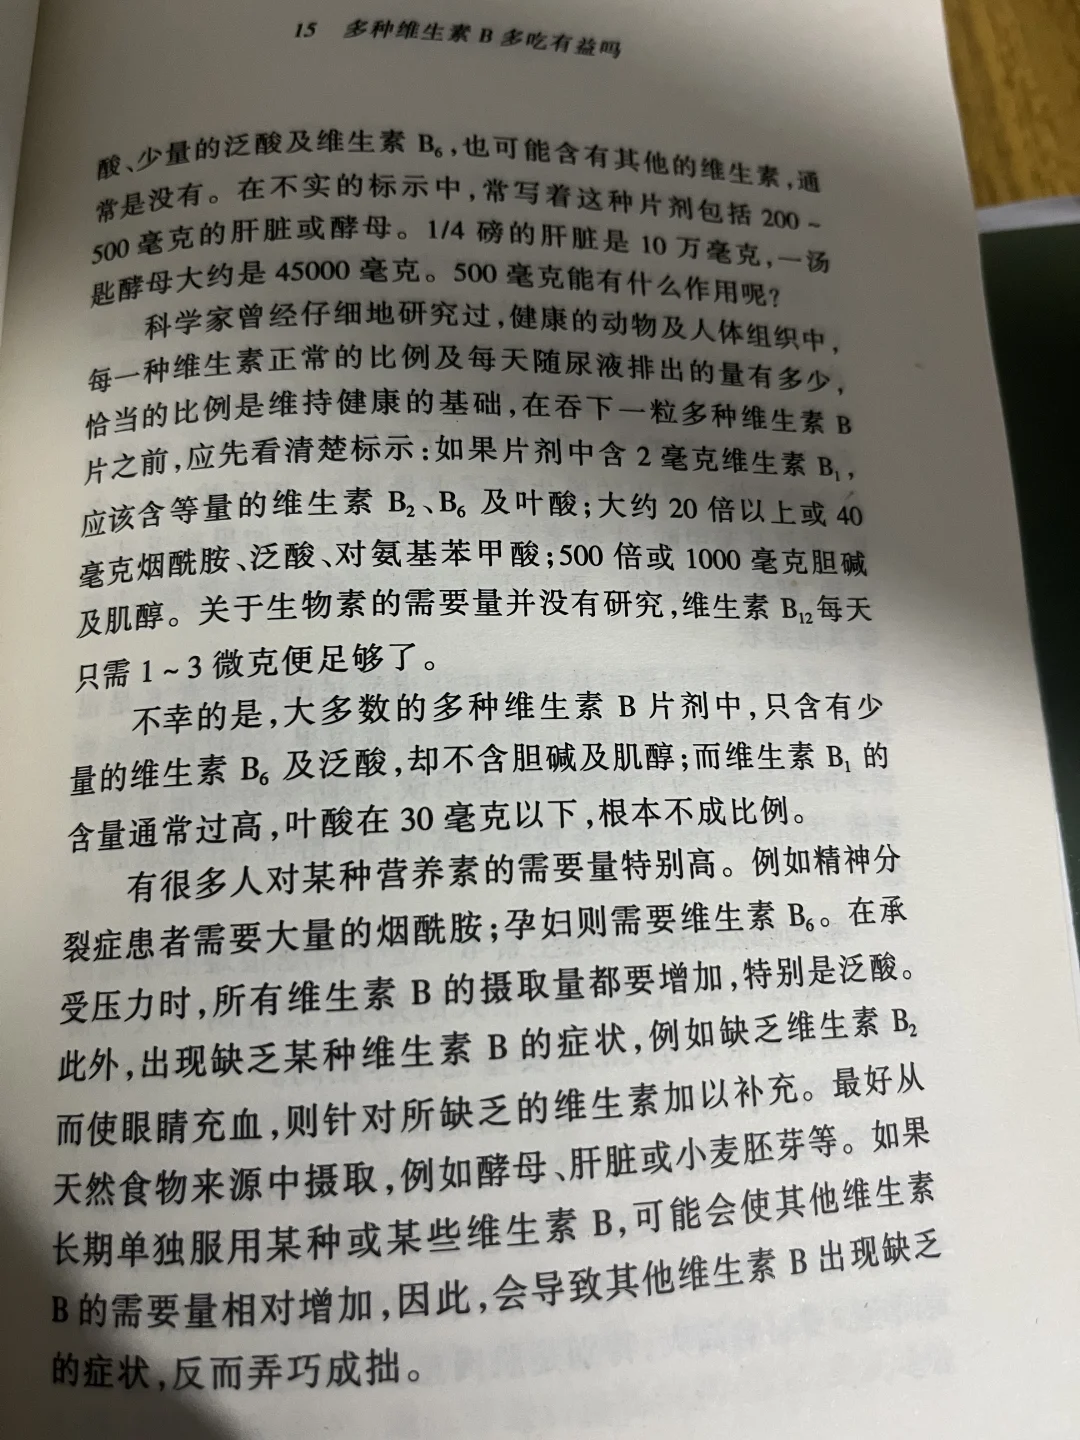 15 多种维生素 B 多吃有益吗
酸、少量的泛酸及维生素 B₆,也可能含有其他的维生素,通
常是没有。在不实的标示中,常写着这种片剂包括 200 ~
500 毫克的肝脏或酵母。1/4 磅的肝脏是 10 万毫克,一汤
匙酵母大约是 45000 毫克。500 毫克能有什么作用呢?
科学家曾经仔细地研究过,健康的动物及人体组织中,
每一种维生素正常的比例及每天随尿液排出的量有多少,
恰当的比例是维持健康的基础,在吞下一粒多种维生素 B
片之前,应先看清楚标示:如果片剂中含 2 毫克维生素 B₁,
应该含等量的维生素 B₂、B₆ 及叶酸;大约 20 倍以上或 40
毫克烟酰胺、泛酸、对氨基苯甲酸;500 倍或 1000 毫克胆碱
及肌醇。关于生物素的需要量并没有研究,维生素 B₁₂每天
只需 1 ~ 3 微克便足够了。
不幸的是,大多数的多种维生素 B 片剂中,只含有少
量的维生素 B₆ 及泛酸,却不含胆碱及肌醇;而维生素 B₁ 的
含量通常过高,叶酸在 30 毫克以下,根本不成比例。
有很多人对某种营养素的需要量特别高。例如精神分
裂症患者需要大量的烟酰胺;孕妇则需要维生素 B₆。在承
受压力时,所有维生素 B 的摄取量都要增加,特别是泛酸。
此外,出现缺乏某种维生素 B 的症状,例如缺乏维生素 B₂
而使眼睛充血,则针对所缺乏的维生素加以补充。最好从
天然食物来源中摄取,例如酵母、肝脏或小麦胚芽等。如果
长期单独服用某种或某些维生素 B,可能会使其他维生素
B 的需要量相对增加,因此,会导致其他维生素 B 出现缺乏
的症状,反而弄巧成拙。